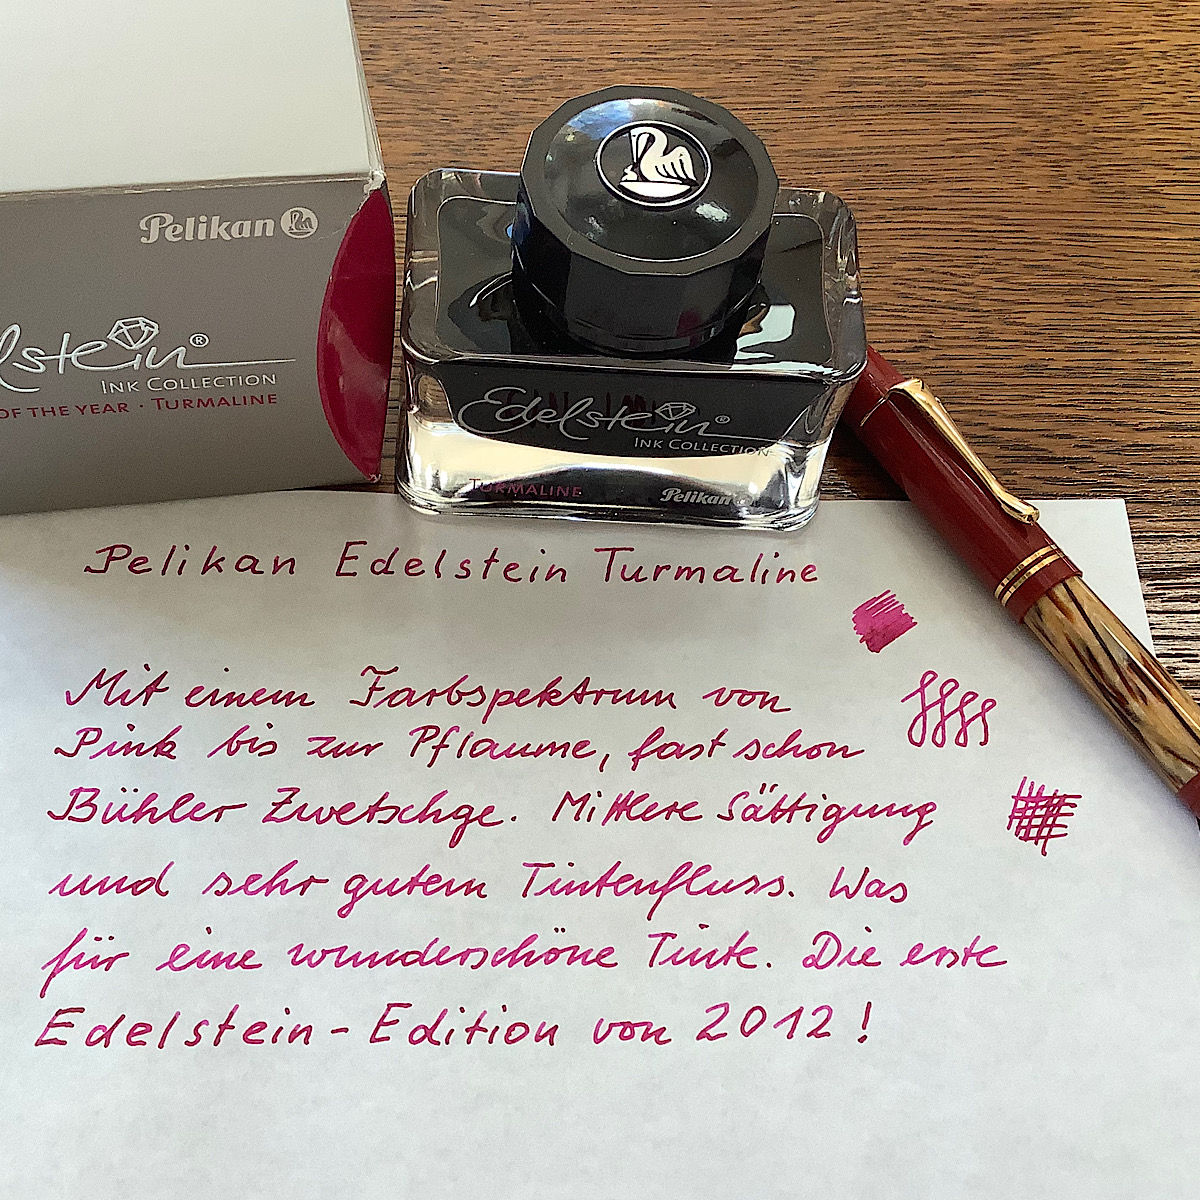 Pelikan
Edelstein®
INK COLLECTION
OF THE YEAR · TURMALINE
Edelstein®
INK COLLECTION
TURMALINE Pelikan
Pelikan Edelstein Turmaline
Mit einem Farbspektrum von
Pink bis zur Pflaume, fast schon
Bühler Zwetschge. Mittlere Sättigung
und sehr gutem Tintenfluss. Was
für eine wunderschöne Tinte. Die erste
Edelstein-Edition von 2012!